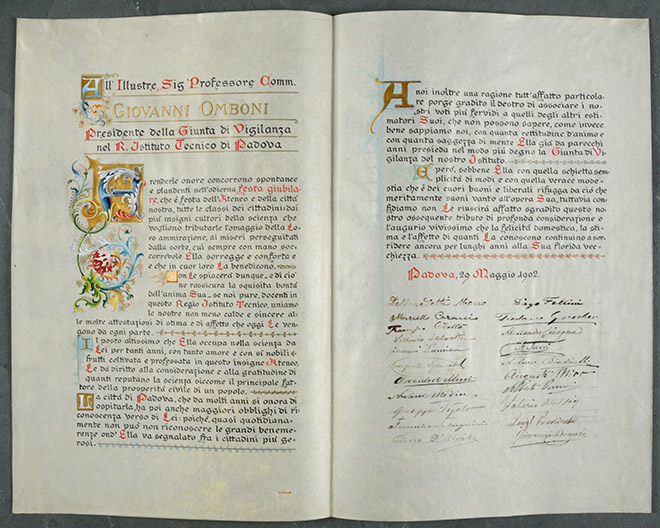 All' Illustre Sig Professore Comm.
GIOVANNI OMBONI
Presidente della Giunta di Vigilanza
nel R. Istituto Tecnico di Padova
A renderle onore concorrono spontanee
e plaudenti nell'odierna festa giubila-
re, che è festa dell'Ateneo e della città
nostra, tutte le classi dei cittadini: dai
più insigni cultori della scienza che
vogliono tributarle l'omaggio della Lo-
ro ammirazione, ai miseri perseguitati
dalla sorte, cui sempre con mano soc-
correvole Ella sorregge e conforta e
che in cuor loro La benedicono.
Non Le spiacerà dunque, e di ciò
ne rassicura la squisita bontà
dell'anima Sua, se noi pure, docenti in
questo Regio Istituto Tecnico, uniamo
le nostre non meno calde e sincere al-
le molte attestazioni di stima e di affetto che oggi Le ven-
gono da ogni parte.
Il posto altissimo che Ella occupa nella scienza da
Lei per tanti anni, con tanto amore e con sì nobili
frutti coltivata e professata in questo insigne Ateneo,
Le dà diritto alla considerazione e alla gratitudine di
quanti reputano la scienza siccome il principale fat-
tore della prosperità civile di un popolo.
La città di Padova, che da molti anni si onora di
ospitarla, ha poi anche maggiori obblighi di ri-
conoscenza verso di Lei: poichè, quasi quotidiana-
mente non può non riconoscere le grandi beneme-
renze ond'Ella va segnalato fra i cittadini più ge-
rosi.
A noi inoltre una ragione tutt'affatto particola-
re porge gradito il destro di associare i no-
stri voti più fervidi a quelli degli altri esti-
matori Suoi, che non possono sapere, come invece
bene sappiamo noi, con quanta rettitudine d'animo e
con quanta saggezza di mente Ella già da parecchi
anni presieda nel modo più degno la Giunta di Vi-
gilanza del nostro Istituto.
E però, sebbene Ella con quella schietta sem-
plicità di modi e con quella verace mode-
stia che è dei cuori buoni e liberali rifugga da ciò che
meritamente suoni vanto all'opera Sua, tuttavia con-
fidiamo non Le riuscirà affatto sgradito questo no-
stro ossequente tributo di profonda considerazione e
l'augurio vivissimo che la felicità domestica, la sti-
ma e l'affetto di quanti La conoscono continuino a sor-
ridere ancora per lunghi anni alla Sua florida vec-
chiezza.
Padova, 29 Maggio 1902.